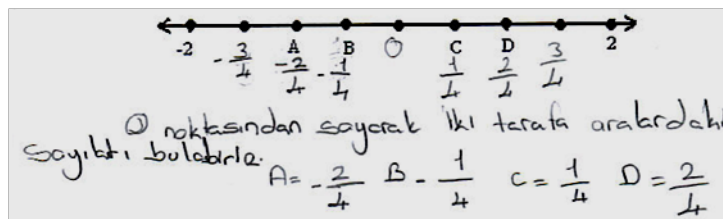 -2 -3/4 A B 0 C D 3/4 2
-2/4 -1/4 1/4 2/4
0 noktasından sayarak iki tarafa aralardaki
sayıları bulabiriz.
A= -2/4 B -1/4 C= 1/4 D= 2/4